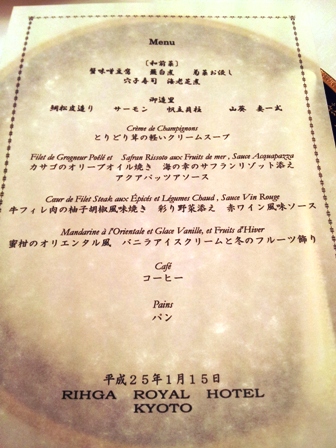 Menu
〔和前菜〕
蟹味噌豆腐 鮑白煮 菊菜お浸し
穴子寿司 海老芝煮
御造里
鯛松皮造り サーモン 帆立貝柱 山葵 妻一式
Crème de Champignons
とりどり茸の軽いクリームスープ
Filet de Grogneur Poêlé et Safran Rissoto aux Fruits de mer , Sauce Acquapazza
カサゴのオリーブオイル焼き 海の幸のサフランリゾット添え
アクアパッツアソース
Cœur de Filet Steak aux Épicés et Légumes Chaud , Sauce Vin Rouge
牛フィレ肉の柚子胡椒風味焼き 彩り野菜添え 赤ワイン風味ソース
Mandarine à l'Orientale et Glace Vanille, et Fruits d'Hiver
蜜柑のオリエンタル風 バニラアイスクリームと冬のフルーツ飾り
Café
コーヒー
Pains
パン
平成25年1月15日
RIHGA ROYAL HOTEL
KYOTO